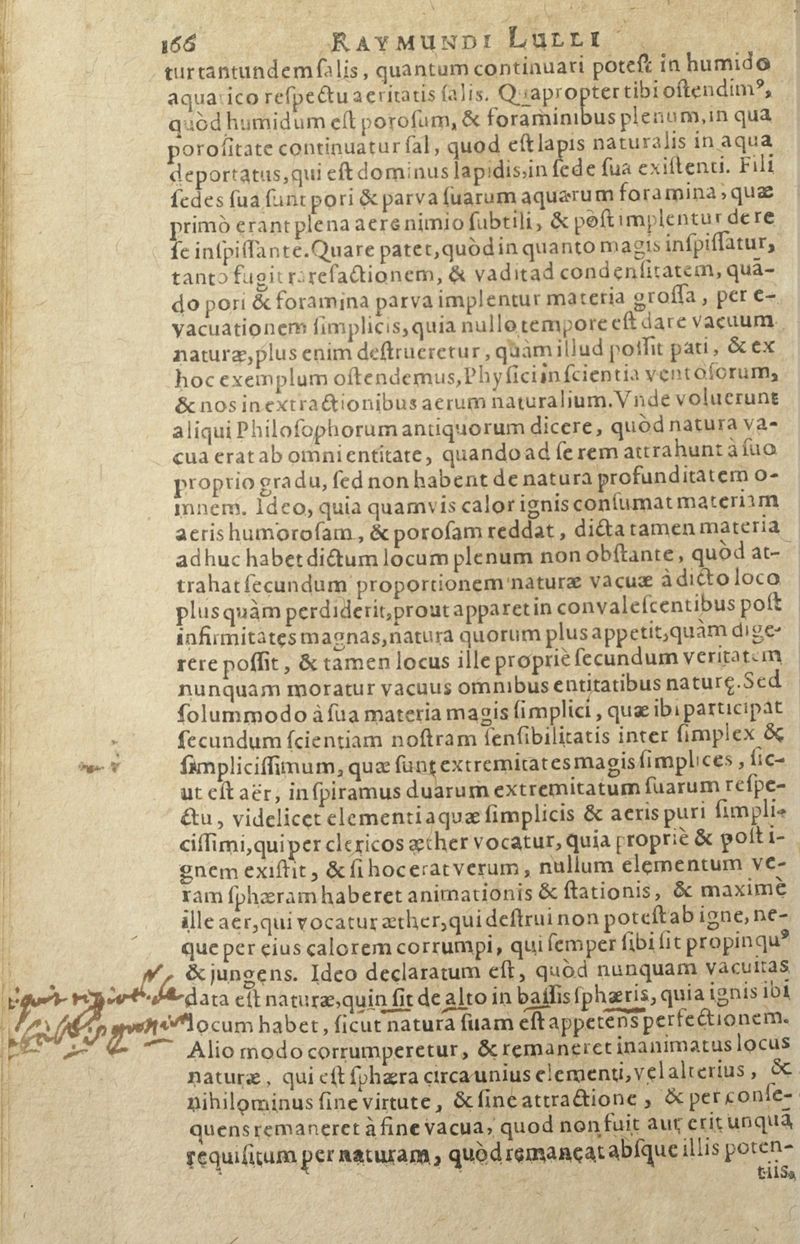 166 RAYMUNDI LULLI
tur tantundem ſalis, quantum continuari poteſt in humido
aquatico reſpectu acritatis ſalis. Quapropter tibi oſtendimꝰ,
quòd humidum eſt poroſum, & foraminibus plenum, in qua
poroſitate continuatur ſal, quod eſt lapis naturalis in aqua
deportatus, qui eſt dominus lapidis, in ſede ſua exiſtenti. Fili
ſedes ſua ſunt pori & parva ſuarum aquarum foramina, quæ
primò erant plena aere nimio ſubtili, & pòſt implentur de re
ſe inſpiſſante. Quare patet, quòd in quanto magis inſpiſſatur,
tanto fugit rarefactionem, & vadit ad condenſitatem, quã-
do pori & foramina parva implentur materia groſſa, per e-
vacuationem ſimplicis, quia nullo tempore eſt dare vacuum
naturæ, plus enim deſtrueretur, quàm illud poſſit pati, & ex
hoc exemplum oſtendemus, Phyſici in ſcientia ventoſorum,
& nos in extractionibus aerum naturalium. Vnde voluerunt
aliqui Philoſophorum antiquorum dicere, quòd natura va-
cua erat ab omni entitate, quando ad ſe rem attrahunt à ſuo
proprio gradu, ſed non habent de natura profunditatem o-
mnem. Ideo, quia quamvis calor ignis conſumat materiam
aeris humoroſam, & poroſam reddat, dicta tamen materia
adhuc habet dictum locum plenum non obſtante, quòd at-
trahat ſecundum proportionem naturæ vacuæ à dicto loco
plus quàm perdiderit, prout apparet in convaleſcentibus poſt
infirmitates magnas, natura quorum plus appetit, quàm dige-
rere poſſit, & tamen locus ille propriè ſecundum veritatem
nunquam moratur vacuus omnibus entitatibus naturę. Sed
ſolummodo à ſua materia magis ſimplici, quæ ibi participat
ſecundum ſcientiam noſtram ſenſibilitatis inter ſimplex &
ſimpliciſſimum, quæ ſunt extremitates magis ſimplices, ſic-
ut eſt aër, inſpiramus duarum extremitatum ſuarum reſpe-
ctu, videlicet elementi aquæ ſimplicis & aeris puri ſimpli-
ciſſimi, qui per clericos æther vocatur, quia propriè & poſt i-
gnem exiſtit, & ſi hoc erat verum, nullum elementum ve-
ram ſphæram haberet animationis & ſtationis, & maximè
ille aer, qui vocatur æther, qui deſtrui non poteſt ab igne, ne-
que per eius calorem corrumpi, qui ſemper ſibi ſit propinquꝰ
& jungens. Ideo declaratum eſt, quòd nunquam vacuitas
data eſt naturæ, quin ſit de alto in baſſis ſphæris, quia ignis ibi
locum habet, ſicut natura ſuam eſt appetens perfectionem.
Alio modo corrumperetur, & remaneret inanimatus locus
naturæ, qui eſt ſphæra circa unius elementi, vel alterius, &
nihilominus ſine virtute, & ſine attractione, & per conſe-
quens remaneret à fine vacua, quod non fuit aut erit unquã
requiſitum per naturam, quòd remaneat abſque illis poten-
tiis,